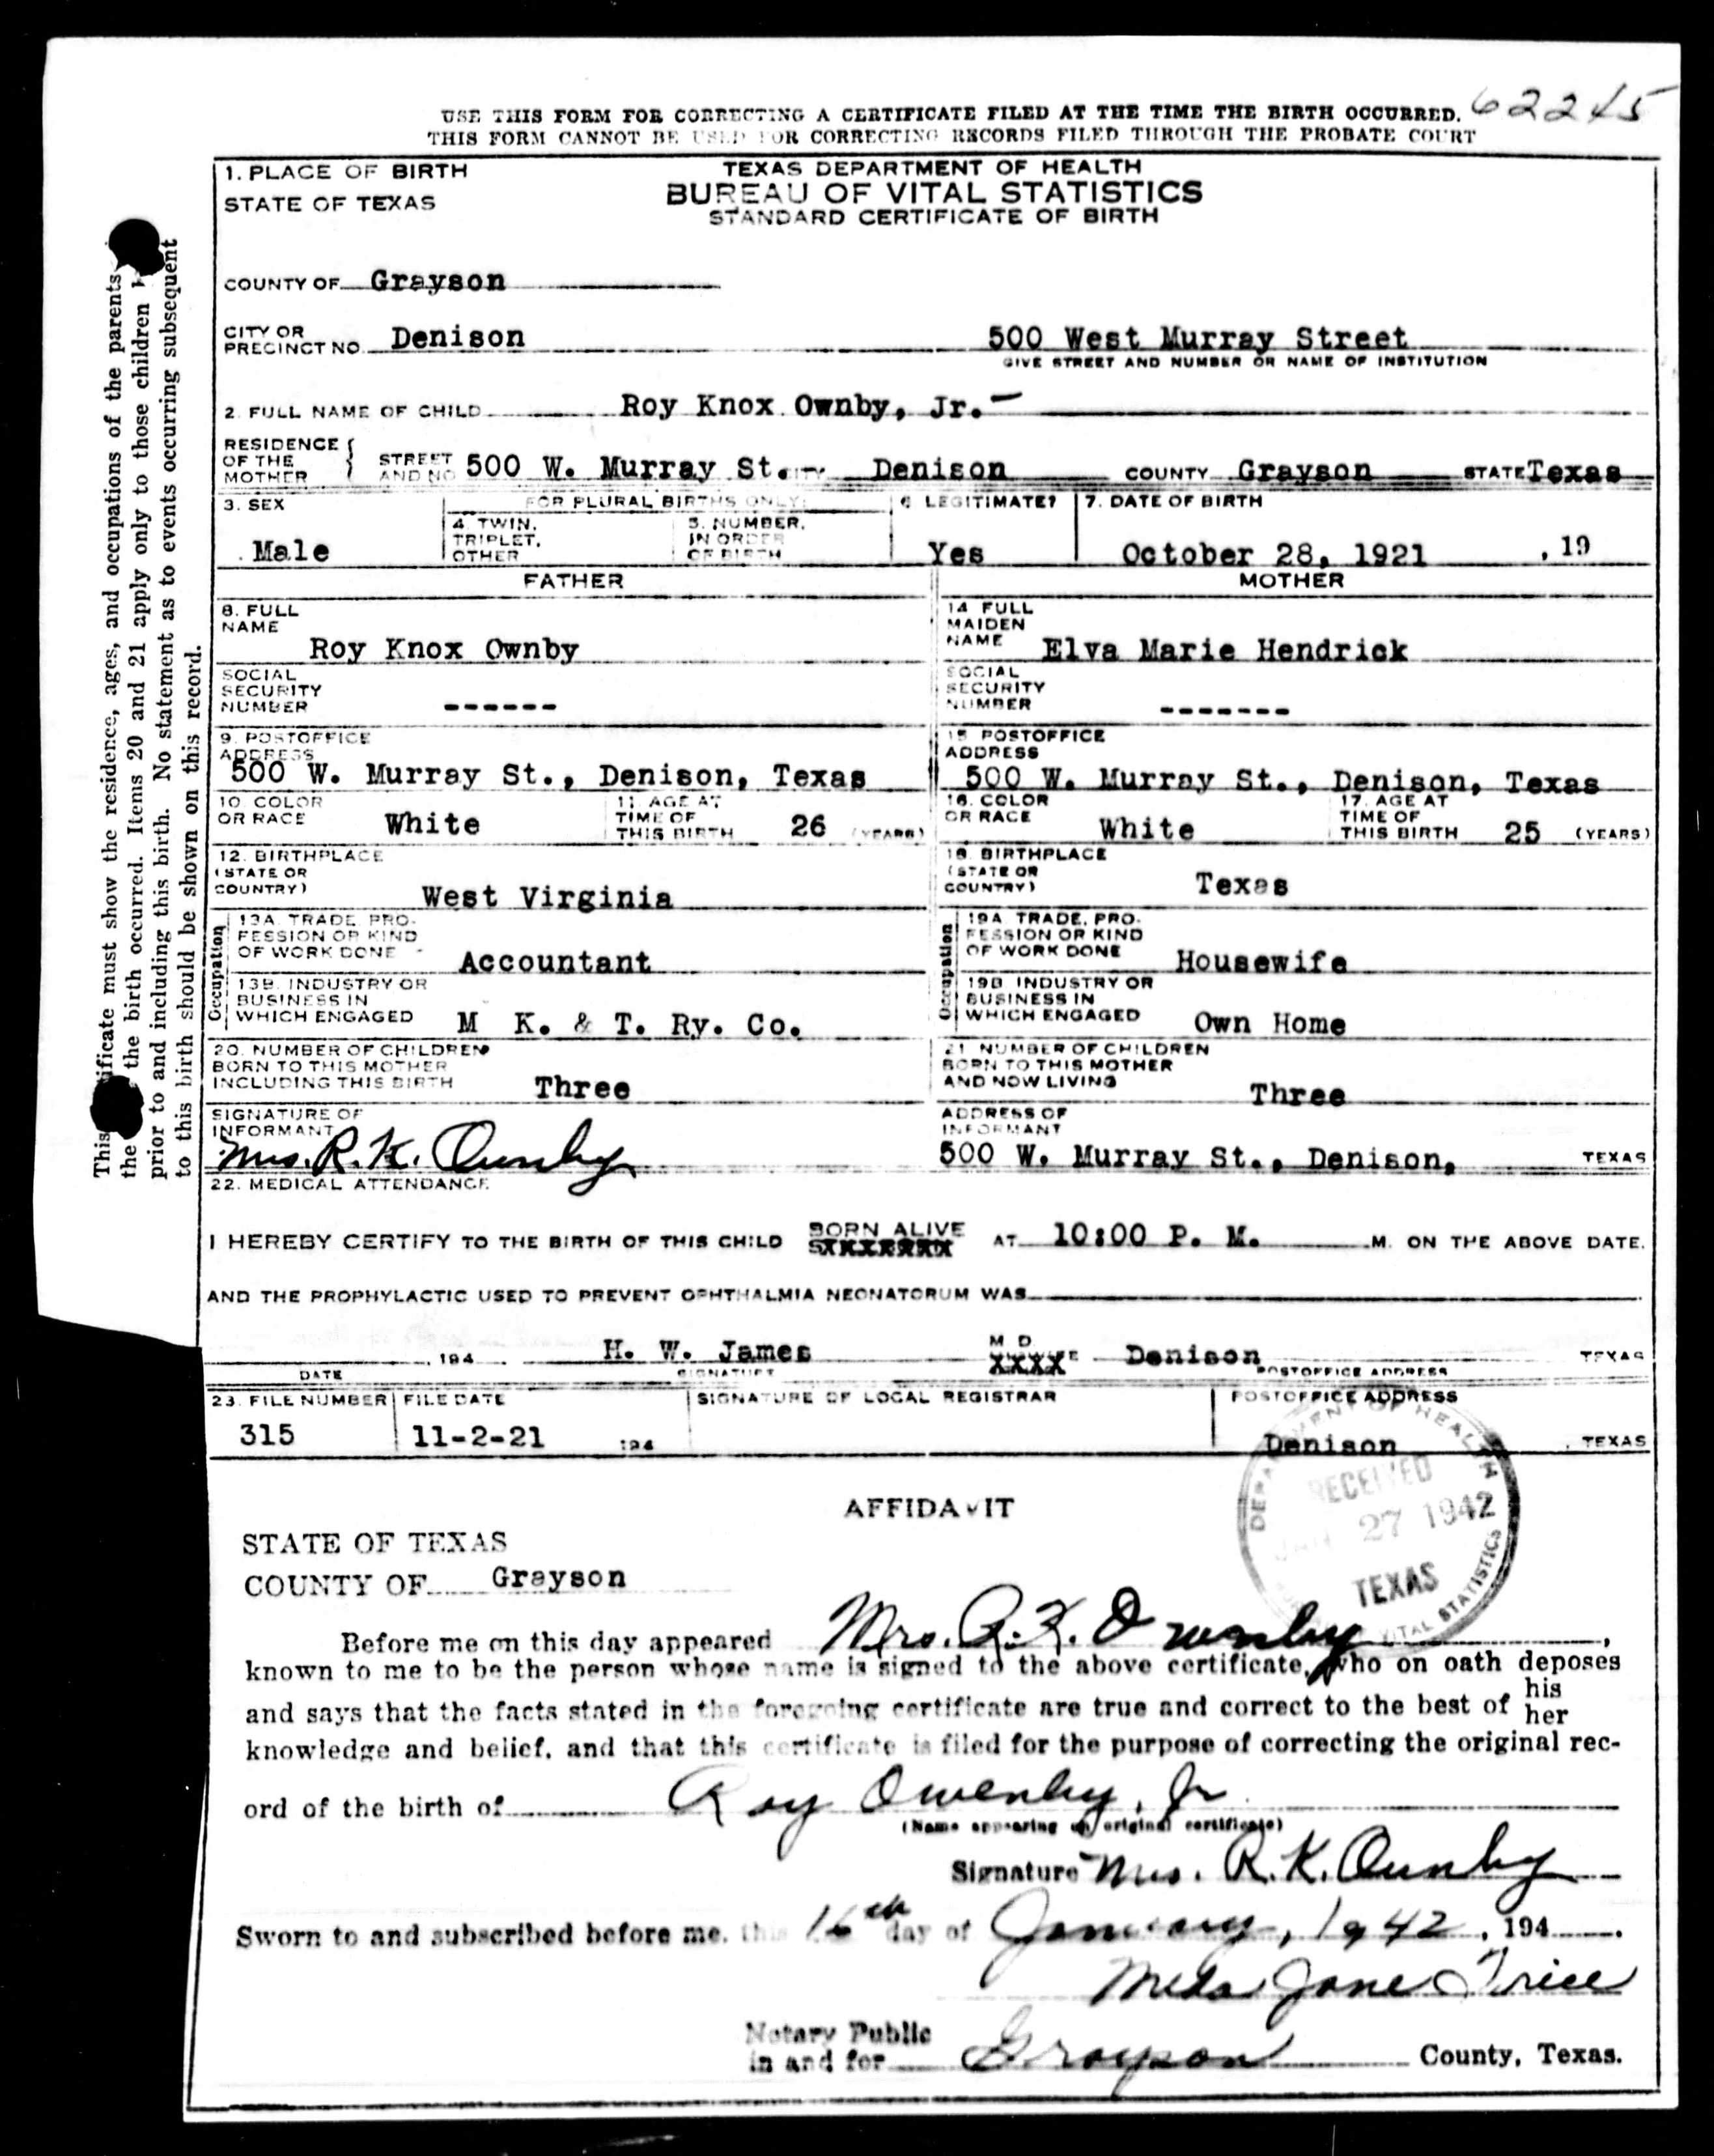 62245
USE THIS FORM FOR CORRECTING A CERTIFICATE FILED AT THE TIME THE BIRTH OCCURRED.
THIS FORM CANNOT BE USED FOR CORRECTING RECORDS FILED THROUGH THE PROBATE COURT
1. PLACE OF BIRTH
STATE OF TEXAS
TEXAS DEPARTMENT OF HEALTH
BUREAU OF VITAL STATISTICS
STANDARD CERTIFICATE OF BIRTH
COUNTY OF Grayson
CITY OR
PRECINCT NO. Denison 500 West Murray Street
GIVE STREET AND NUMBER OR NAME OF INSTITUTION
2. FULL NAME OF CHILD Roy Knox Ownby, Jr.-
RESIDENCE
OF THE
MOTHER
STREET
AND NO 500 W. Murray St. CITY Denison COUNTY Grayson STATE Texas
3. SEX
Male
FOR PLURAL BIRTHS ONLY:
4. TWIN,
TRIPLET,
OTHER
5. NUMBER,
IN ORDER
OF BIRTH
6 LEGITIMATE?
Yes
7. DATE OF BIRTH
October 28, 1921 , 19
FATHER
MOTHER
8. FULL
NAME
Roy Knox Ownby
14 FULL
MAIDEN
NAME Elva Marie Hendrick
SOCIAL
SECURITY
NUMBER ------
SOCIAL
SECURITY
NUMBER -------
9. POSTOFFICE
ADDRESS
500 W. Murray St., Denison, Texas
15 POSTOFFICE
ADDRESS
500 W. Murray St., Denison, Texas
10. COLOR
OR RACE White
11. AGE AT
TIME OF
THIS BIRTH 26 (YEARS)
16. COLOR
OR RACE White
17. AGE AT
TIME OF
THIS BIRTH 25 (YEARS)
12. BIRTHPLACE
(STATE OR
COUNTRY) West Virginia
18. BIRTHPLACE
(STATE OR
COUNTRY) Texas
Occupation
13A. TRADE, PRO-
FESSION OR KIND
OF WORK DONE - Accountant
Occupation
19A TRADE, PRO-
FESSION OR KIND
OF WORK DONE Housewife
13B. INDUSTRY OR
BUSINESS IN
WHICH ENGAGED M K. & T. Ry. Co.
19B INDUSTRY OR
BUSINESS IN
WHICH ENGAGED Own Home
20. NUMBER OF CHILDREN
BORN TO THIS MOTHER
INCLUDING THIS BIRTH Three
21 NUMBER OF CHILDREN
BORN TO THIS MOTHER
AND NOW LIVING Three
SIGNATURE OF
INFORMANT
Mrs. R. K. Ownby
ADDRESS OF
INFORMANT
500 W. Murray St., Denison, TEXAS
22. MEDICAL ATTENDANCE
I HEREBY CERTIFY TO THE BIRTH OF THIS CHILD BORN ALIVE AT 10:00 P. M. M. ON THE ABOVE DATE.
AND THE PROPHYLACTIC USED TO PREVENT OPHTHALMIA NEONATORUM WAS
, 194 H. W. James M D Denison TEXAS
DATE SIGNATURE POSTOFFICE ADDRESS
23. FILE NUMBER
315
FILE DATE
11-2-21 194
SIGNATURE OF LOCAL REGISTRAR
POSTOFFICE ADDRESS
Denison , TEXAS
DEPARTMENT OF HEALTH
RECEIVED
JAN 27 1942
TEXAS
VITAL STATISTICS
AFFIDAVIT
STATE OF TEXAS
COUNTY OF Grayson
Before me on this day appeared Mrs. R. K. Ownby ,
known to me to be the person whose name is signed to the above certificate, who on oath deposes
and says that the facts stated in the foregoing certificate are true and correct to the best of his her
knowledge and belief, and that this certificate is filed for the purpose of correcting the original rec-
ord of the birth of Roy Owenby, Jr
(Name appearing on original certificate)
Signature Mrs. R. K. Ownby
Sworn to and subscribed before me, this 16th day of January, 1942, 194
Meda Jane Trice
Notary Public
in and for Grayson County, Texas.
This ificate must show the residence, ages, and occupations of the parents
the the birth occurred. Items 20 and 21 apply only to those children
prior to and including this birth. No statement as to events occurring subsequent
to this birth should be shown on this record.